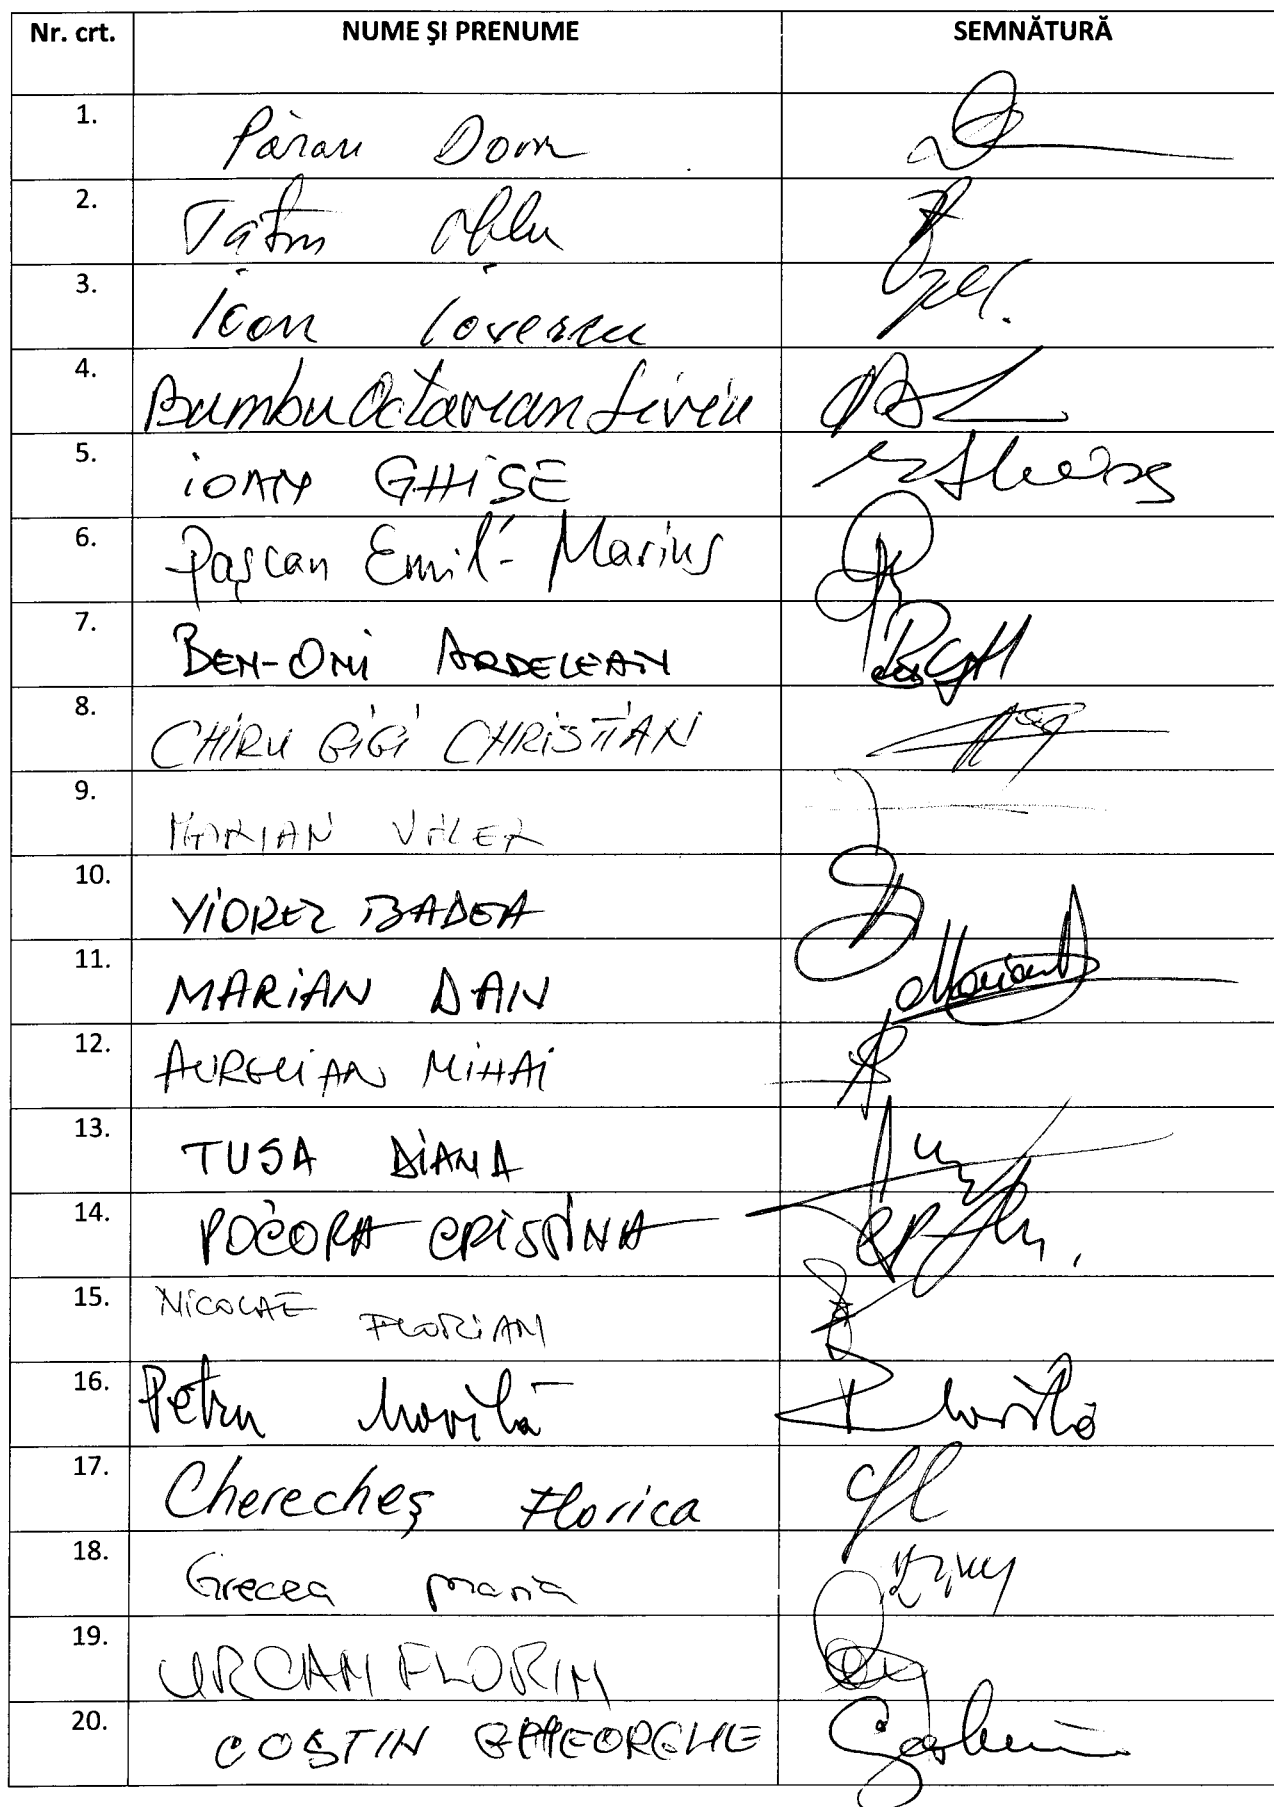 Nr. crt. NUME ŞI PRENUME SEMNĂTURĂ
1. Pâran Dorin
2.
3. Icon Iovescu
4. Bumbu Octavian Liviu
5. iOAN GHiSE
6. Paşcan Emil-Marius
7. BEN-ONi ARDELEAN
8. CHiRU GiGi CHRiSTiAN
9. MARIAN VALER
10. ViOREL BADEA
11. MARiAN DAN Marian D
12. AURELiAN MiHAi
13. TUSA DiANA
14. POCORA CRiSTiNA
15. NiCOLAE FLORiAN
16. Petru Movilă Movilă
17. Cherecheş Florica
18. Grecea Maria
19. URCAN FLORIN
20. COSTIN GHEORGHE